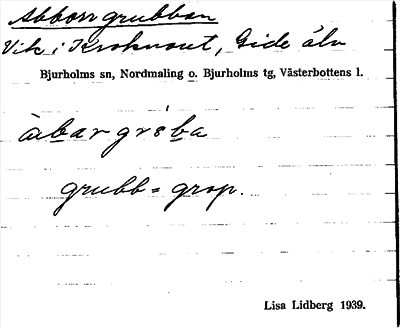 Abborrgrubban
Vik i Kroknoret, Gide älv
Bjurholms sn, Nordmaling o. Bjurholms tg, Västerbottens l.
grubb = grop.
Lisa Lidberg 1939.